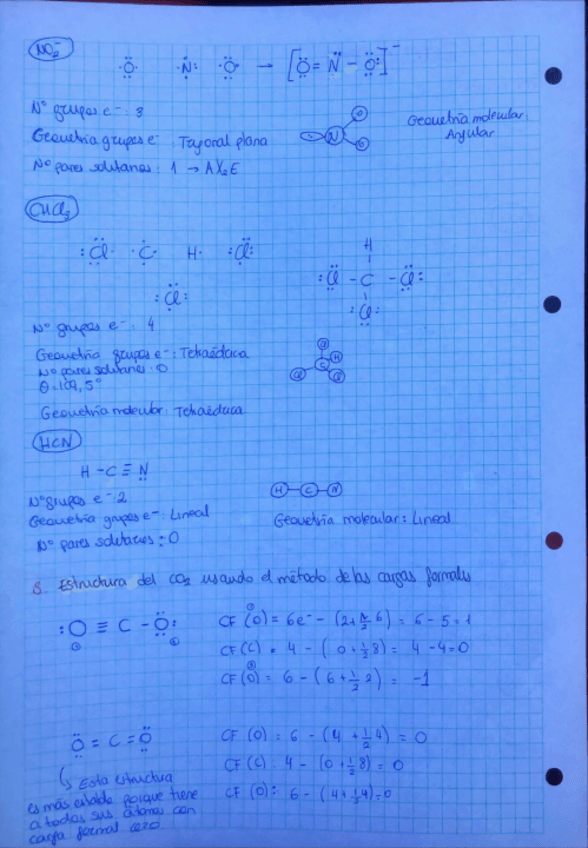 NO₂⁻
·Ö· ·N̈: ·Ö· → [Ö = N̈ - Ö:]⁻
Nº grupos e⁻: 3
Geometría grupos e⁻: Trigonal plana
Nº pares solitarios: 1 → AX₂E
N O O
Geometría molecular:
Angular
CHCl₃
:Cl· ·C· H· ·Cl:
:Cl:
H
:Cl - C - Cl:
:Cl:
Nº grupos e⁻: 4
Geometría grupos e⁻: Tetraédrica
Nº pares solitarios: 0
θ: 109,5°
Geometría molecular: Tetraédrica
Cl
C H
Cl Cl
HCN
H - C ≡ N
Nº grupos e⁻ 2
Geometría grupos e⁻: Lineal
Nº pares solitarios: 0
H - C - N
Geometría molecular: Lineal
Estructura del CO₂ usando el método de las cargas formales
:O ≡ C - Ö:
⊕ ⊖
CF (O) = 6e⁻ - (2 + 1/2 6) = 6 - 5 = 1
CF (C) = 4 - (0 + 1/2 8) = 4 - 4 = 0
CF (O) = 6 - (6 + 1/2 2) = -1
Ö = C = Ö
CF (O) : 6 - (4 + 1/2 4) = 0
CF (C) : 4 - (0 + 1/2 8) = 0
CF (O) : 6 - (4 + 1/2 4) = 0
Esta estructura
es más estable porque tiene
a todos sus átomos con
carga formal cero.